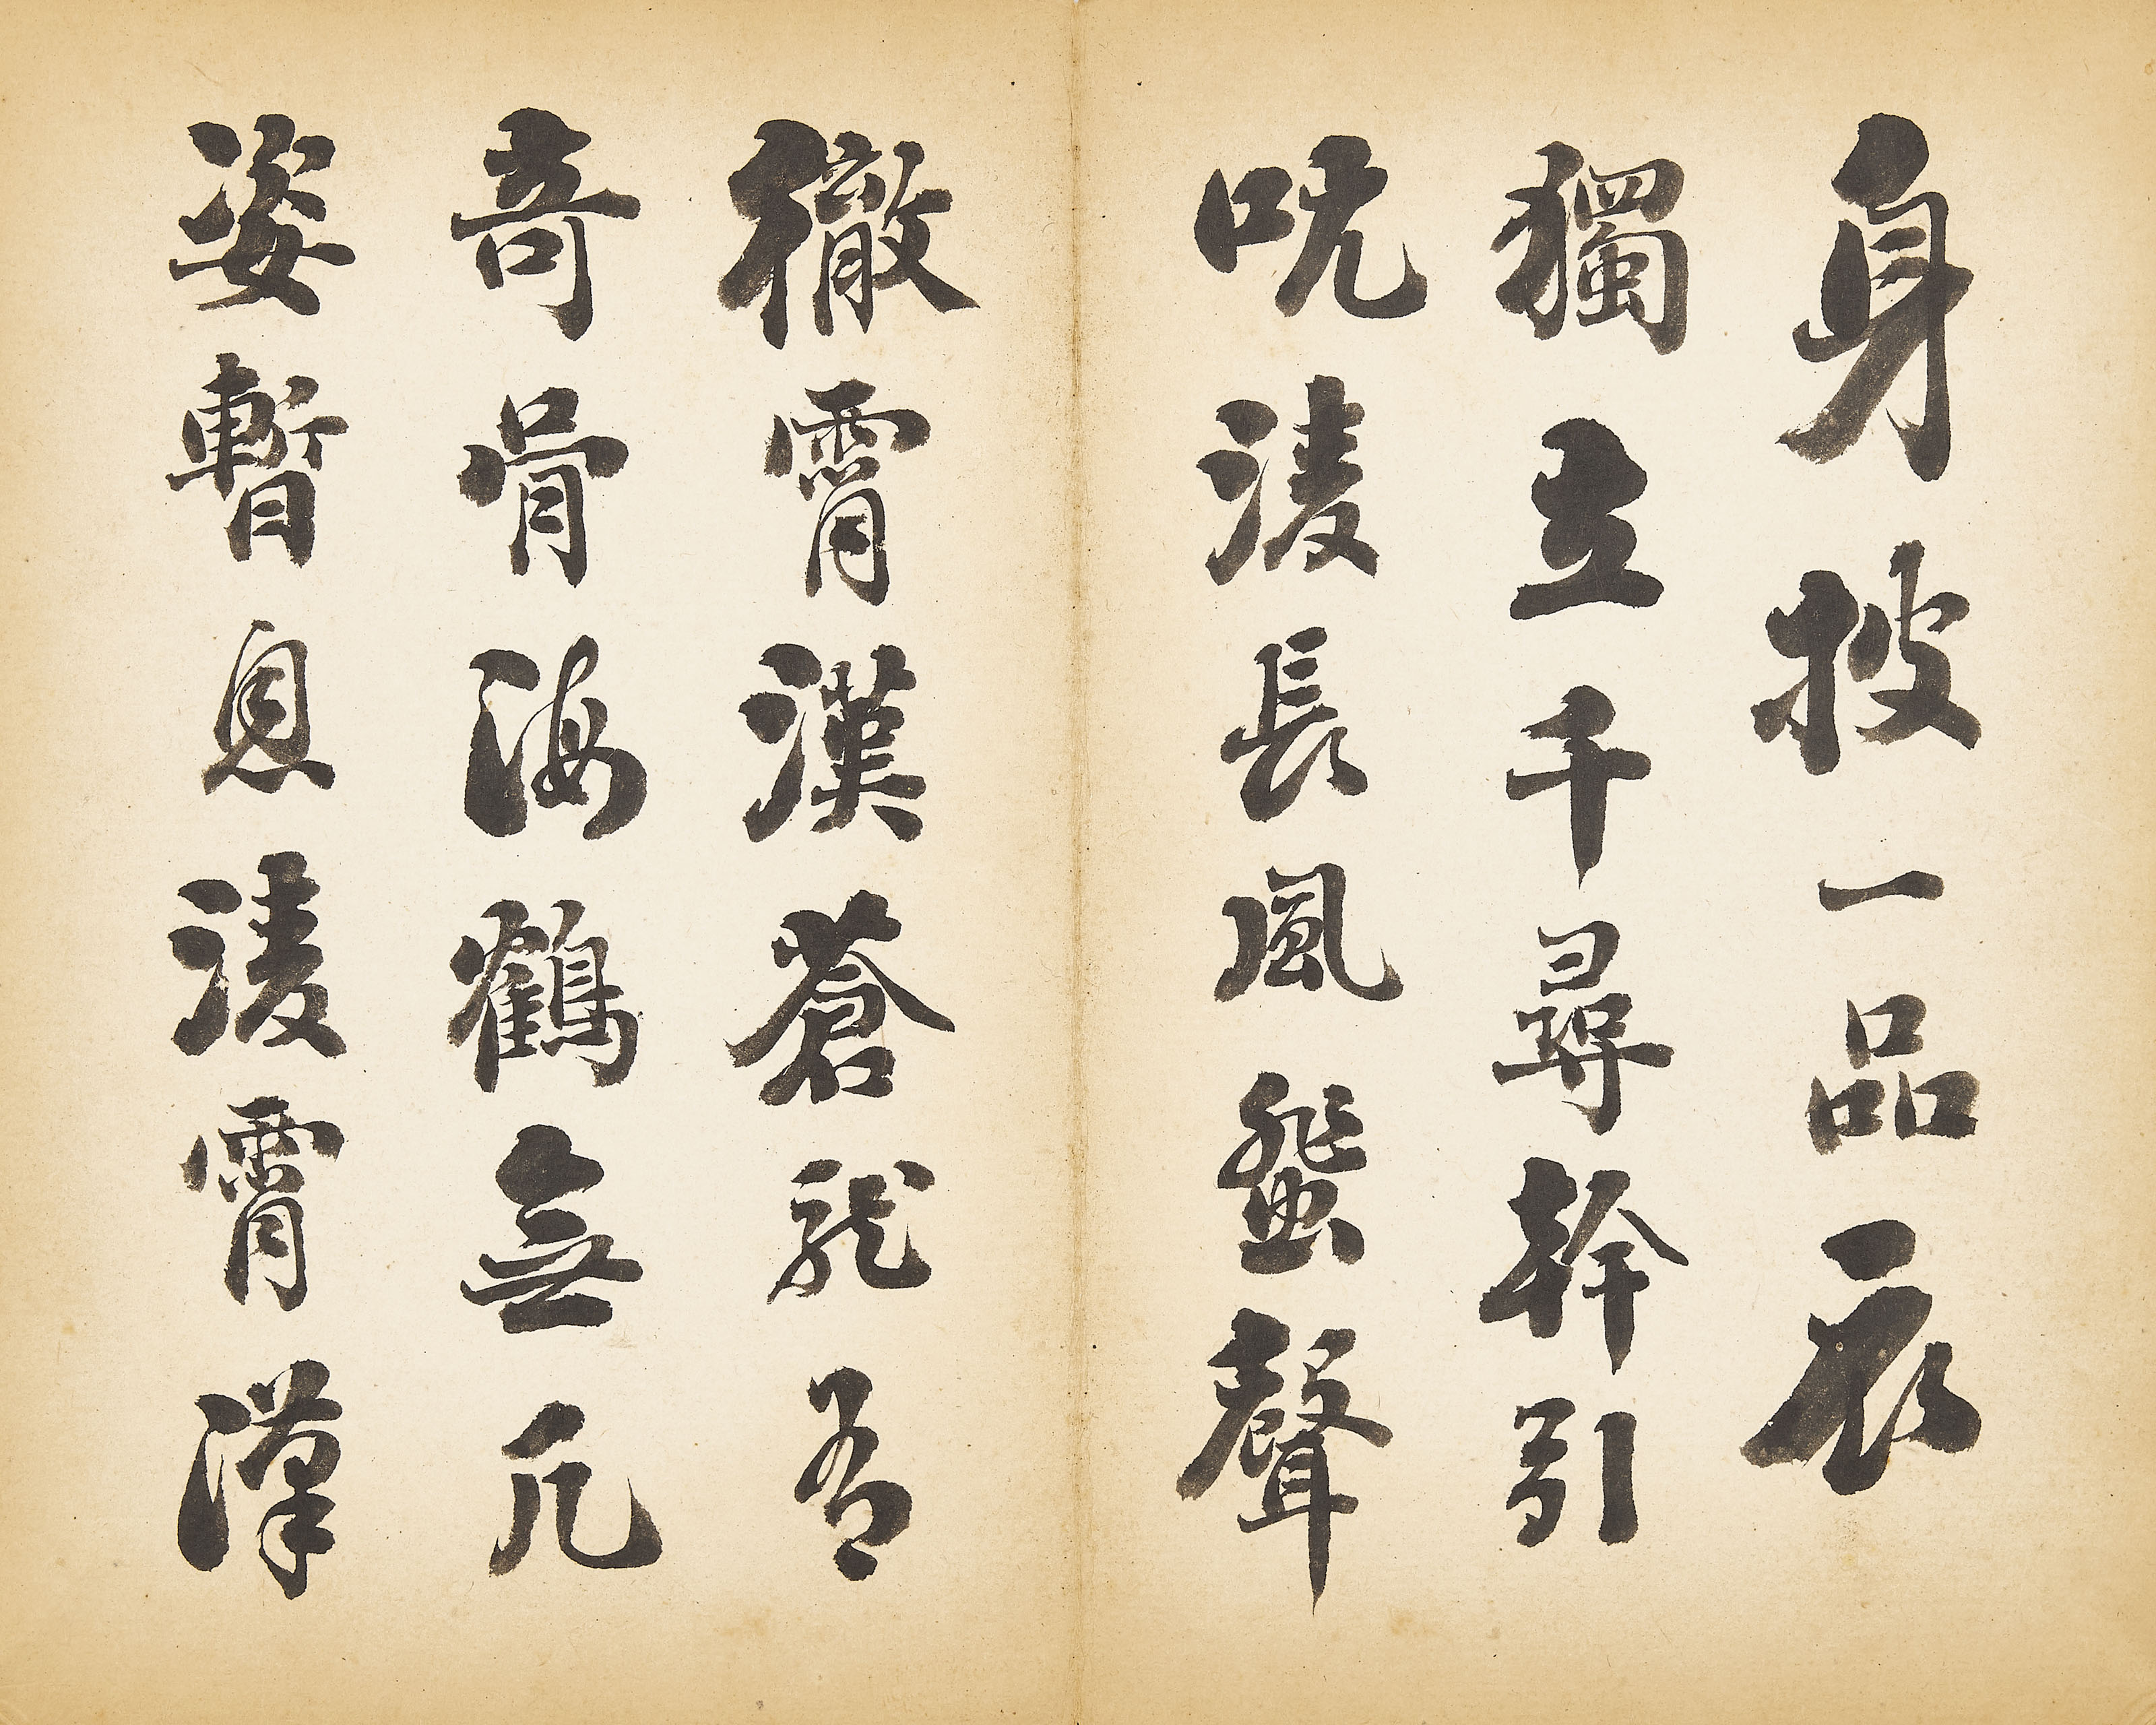 身披一品衣
獨立千尋幹引
吭淩長風蜚聲
徹霄漢蒼龍有
竒骨海鶴無凡
姿暫息淩霄漢